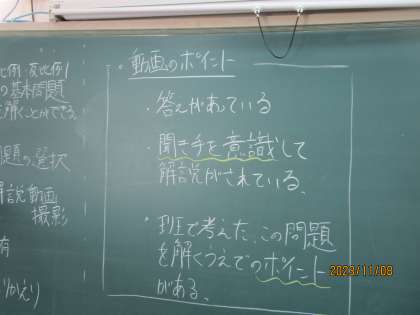 比例・反比例
の基本問題
を解くことができる
問題の選択
解説動画
撮影
有
りかえり
・動画のポイント
・答えがあっている
・聞き手を意識して
解説がされている。
・班で考えた、この問題
を解くうえでのポイント
がある。
2023/11/08